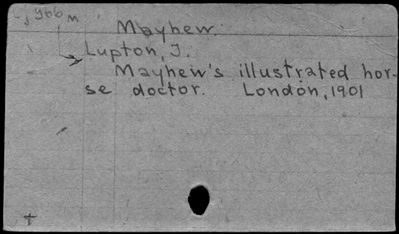 Mayhew.
Lupton, J.
Mayhew's illustrated hor-
se doctor. London, 1901